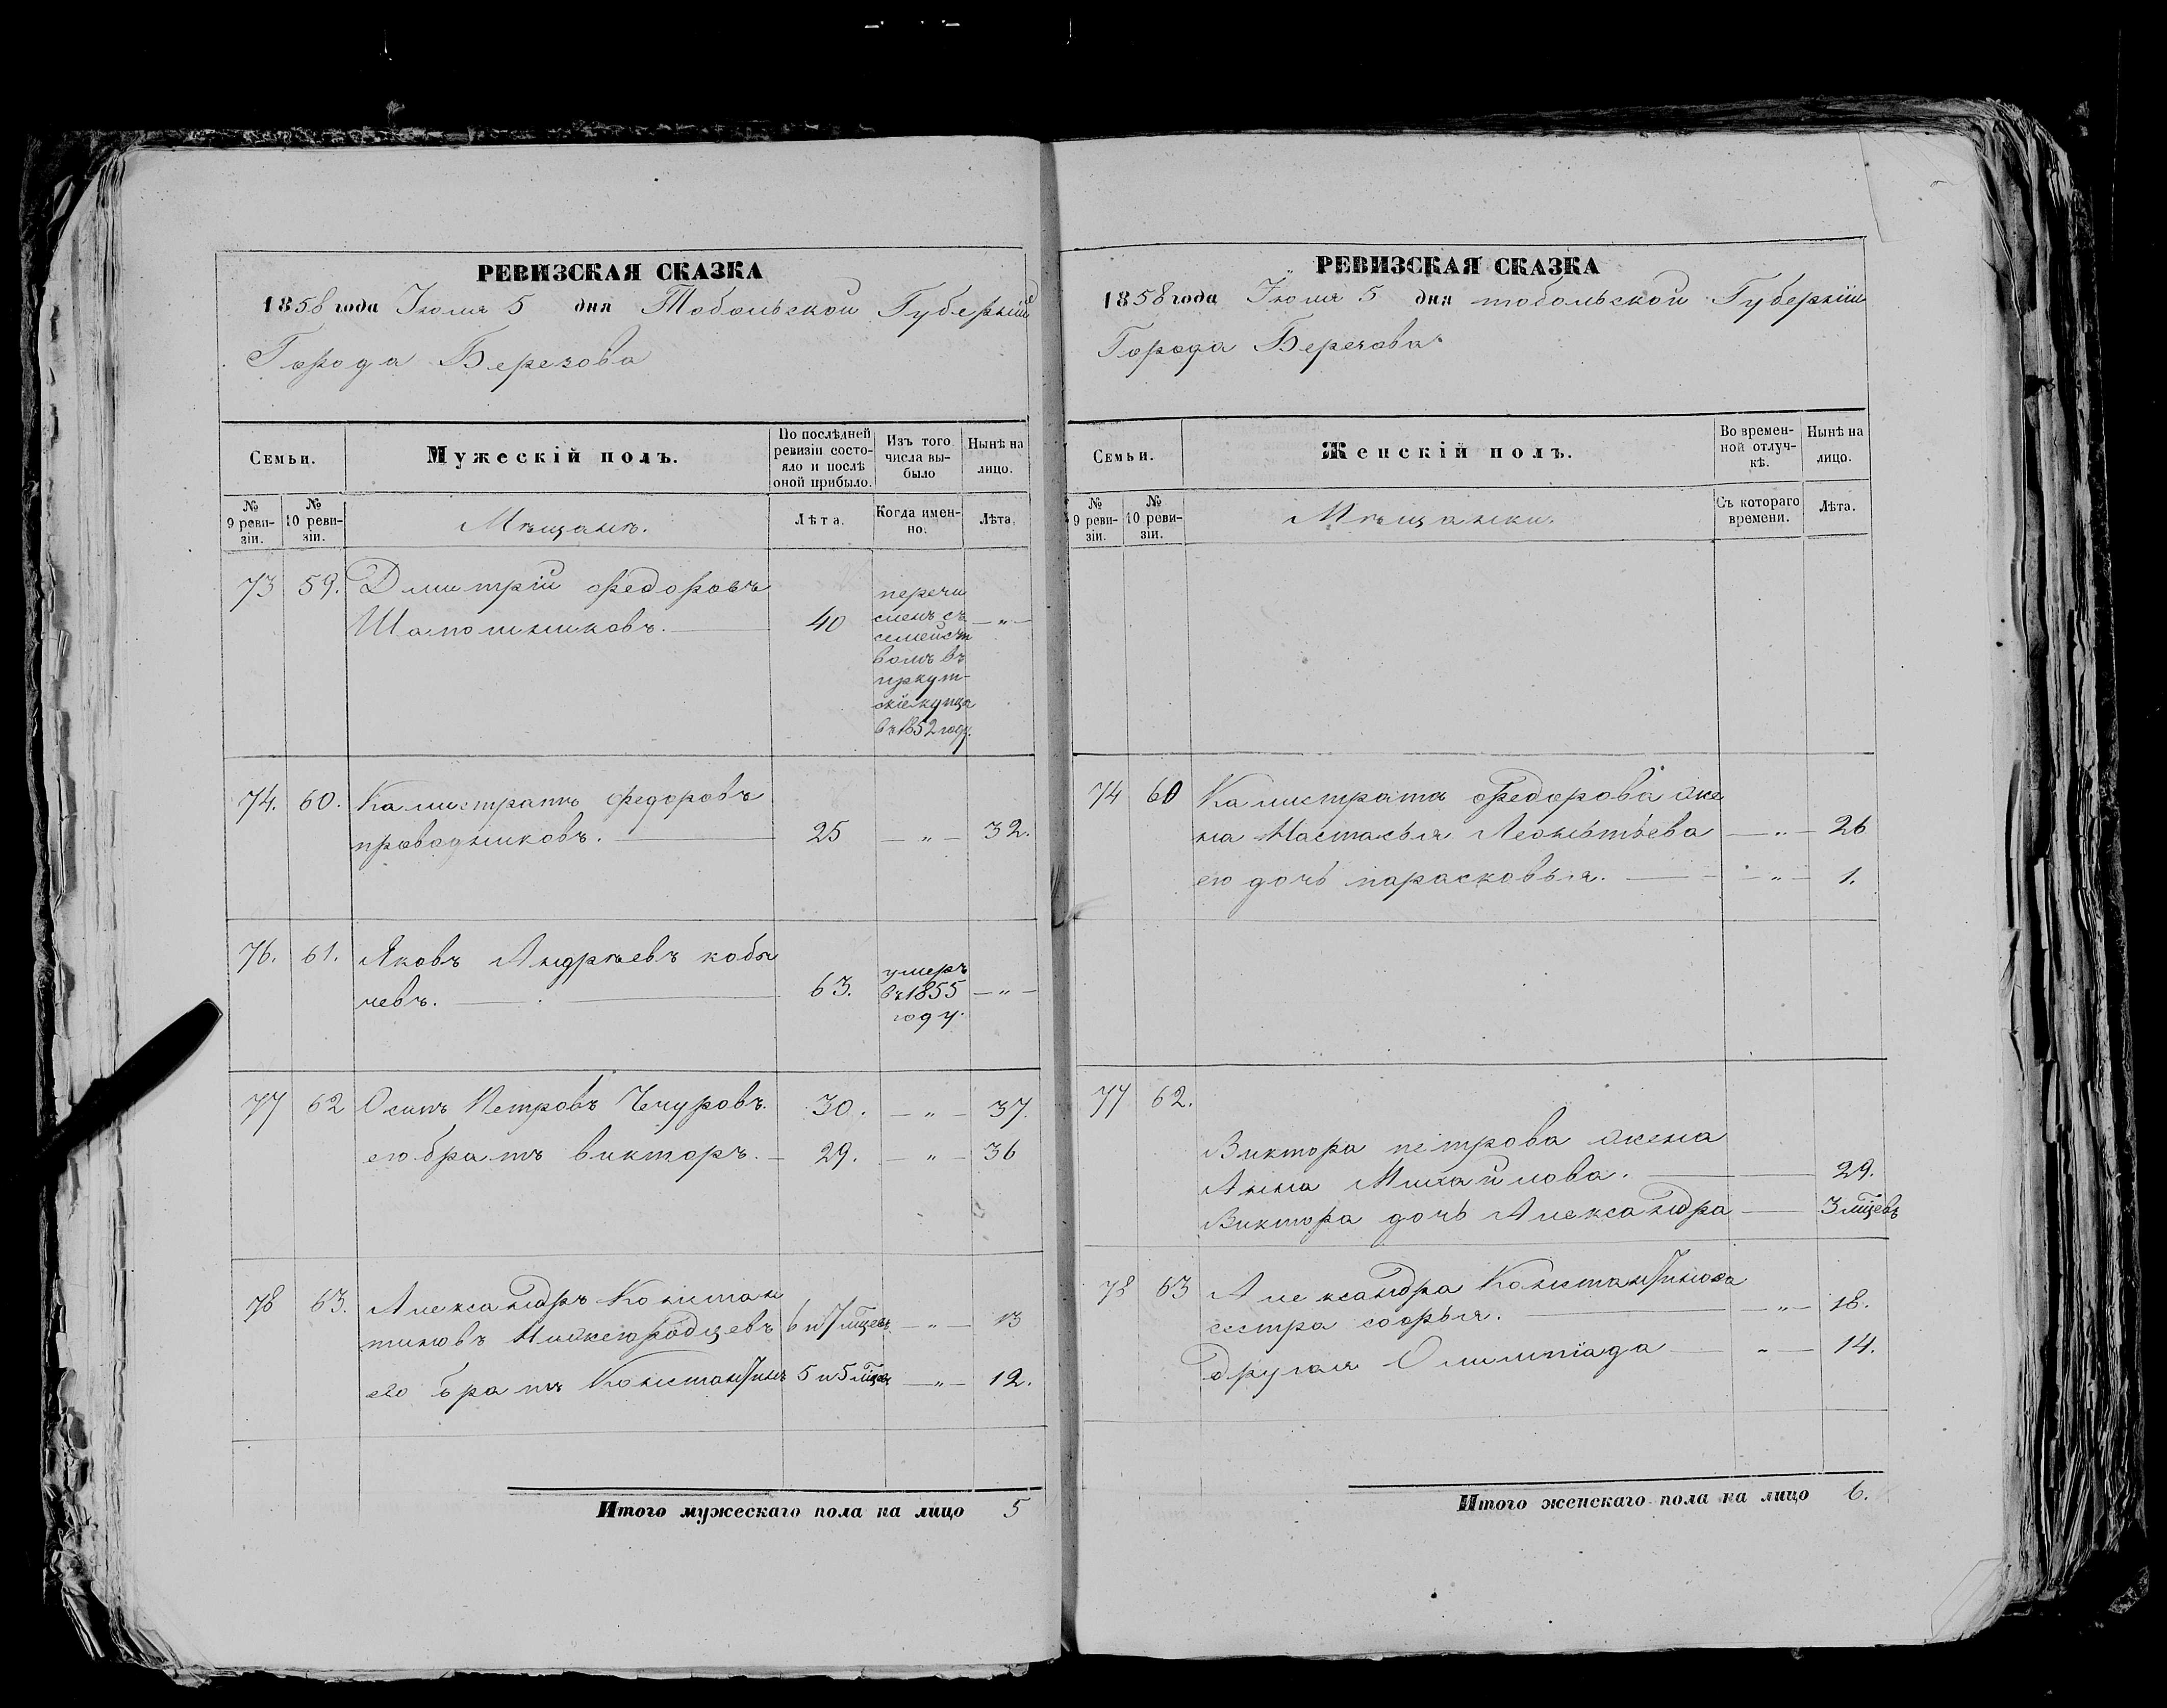 РЕВИЗСКАЯ СКАЗКА
1858 года Іюля 5 дня Тобольской Губерніи
Города Березова
Семьи.
Мужескій полъ.
По послѣдней ревизіи состо-
яло и послѣ оной прибыло.
Изъ того числа вы-
было
Нынѣ на лицо.
№ 9 реви-
зіи.
№ 10 реви-
зіи.
Мѣщане.
Лѣта.
Когда имен-
но.
Лѣта.
73 59. Дмитрій Федоровъ
Шапошниковъ. 40 — „ —
перечи
сленъ съ
семейст
вомъ въ
иркут-
скіе купцы
въ 1852 году.
74. 60. Калистратъ Федоровъ
проводниковъ. 25 — „ — 32.
76. 61. Яковъ Андрѣевъ кобы
чевъ. 63. — „ —
умеръ
въ 1855
году.
77 62 Осипъ Петровъ Чечуровъ. 30. — „ — 37.
его братъ викторъ. 29. — „ — 36
78 63. Александръ Констан
тиновъ Нижегородцевъ 6 и 7 мцевъ — „ — 13
его братъ Константинъ 5 и 5 мцевъ — „ — 12.
Итого мужескаго пола на лицо 5
РЕВИЗСКАЯ СКАЗКА
1858 года Іюля 5 дня тобольской Губерніи
Города Березова
Семьи.
Женскій полъ.
Во времен-
ной отлуч-
кѣ.
Нынѣ на лицо.
№ 9 реви-
зіи.
№ 10 реви-
зіи.
Мѣщанки.
Съ котораго времени.
Лѣта.
74 60 Калистрата Федорова же
на Настасья Леонтьева — „ — 26
его дочь парасковья. — „ — 1.
77 62.
Виктора петрова жена
Анна Михайлова. 29.
Виктора дочь Александра 3 мцевъ
78 63 Александра Константинова
сестра софья. — „ — 18.
другая Олимпіада — „ — 14.
Итого женскаго пола на лицо 6.